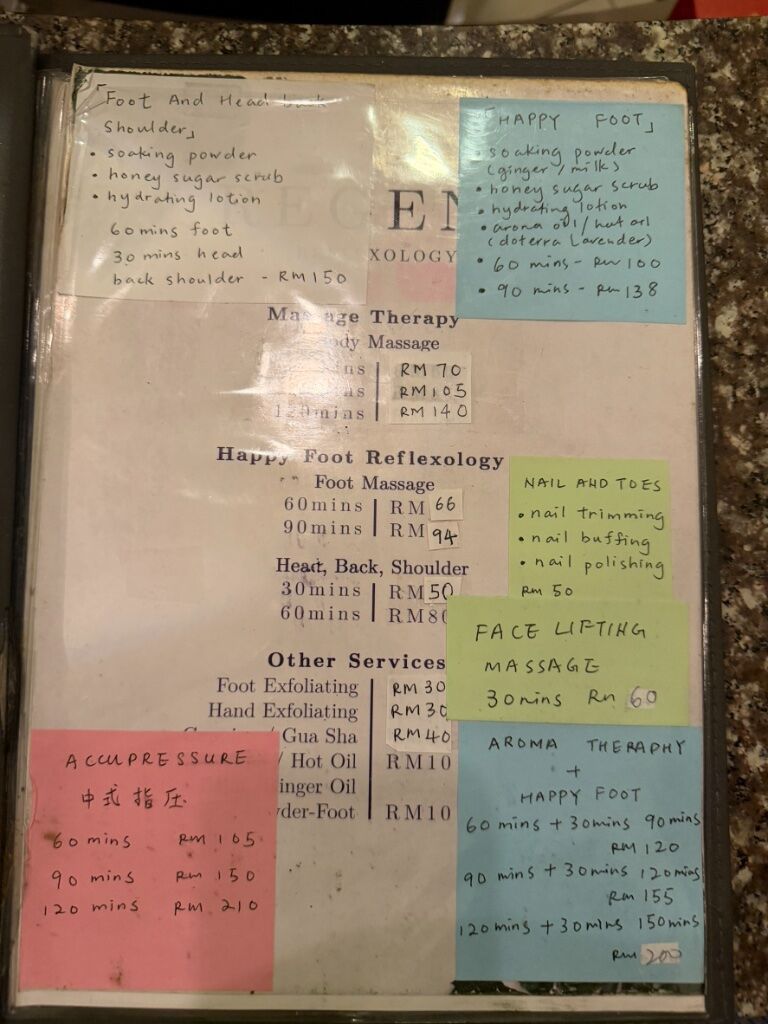 「Foot And Head back
Shoulder」
• soaking powder
• honey sugar scrub
• hydrating lotion
60 mins foot
30 mins head
back shoulder - RM150
「HAPPY FOOT」
• soaking powder
(ginger / milk)
• honey sugar scrub
• hydrating lotion
• aroma oil / hot oil
(doterra Lavender)
• 60 mins - RM 100
• 90 mins - RM 138
EGEN
XOLOGY
Massage Therapy
ody Massage
ns RM 70
s RM105
120mins RM 140
Happy Foot Reflexology
Foot Massage
60mins RM 66
90mins RM 94
Head, Back, Shoulder
30mins RM50
60mins RM80
NAIL AND TOES
• nail trimming
• nail buffing
• nail polishing
RM 50
FACE LIFTING
MASSAGE
30mins RM 60
Other Services
Foot Exfoliating RM 30
Hand Exfoliating RM 30
/ Gua Sha RM 40
/ Hot Oil RM10
inger Oil
der-Foot RM10
ACCUPRESSURE
中式指圧
60 mins RM 105
90 mins RM 150
120 mins RM 210
AROMA THERAPHY
+
HAPPY FOOT
60 mins + 30mins 90mins
RM 120
90 mins + 30mins 120mins
RM 155
120mins + 30mins 150mins
RM 200